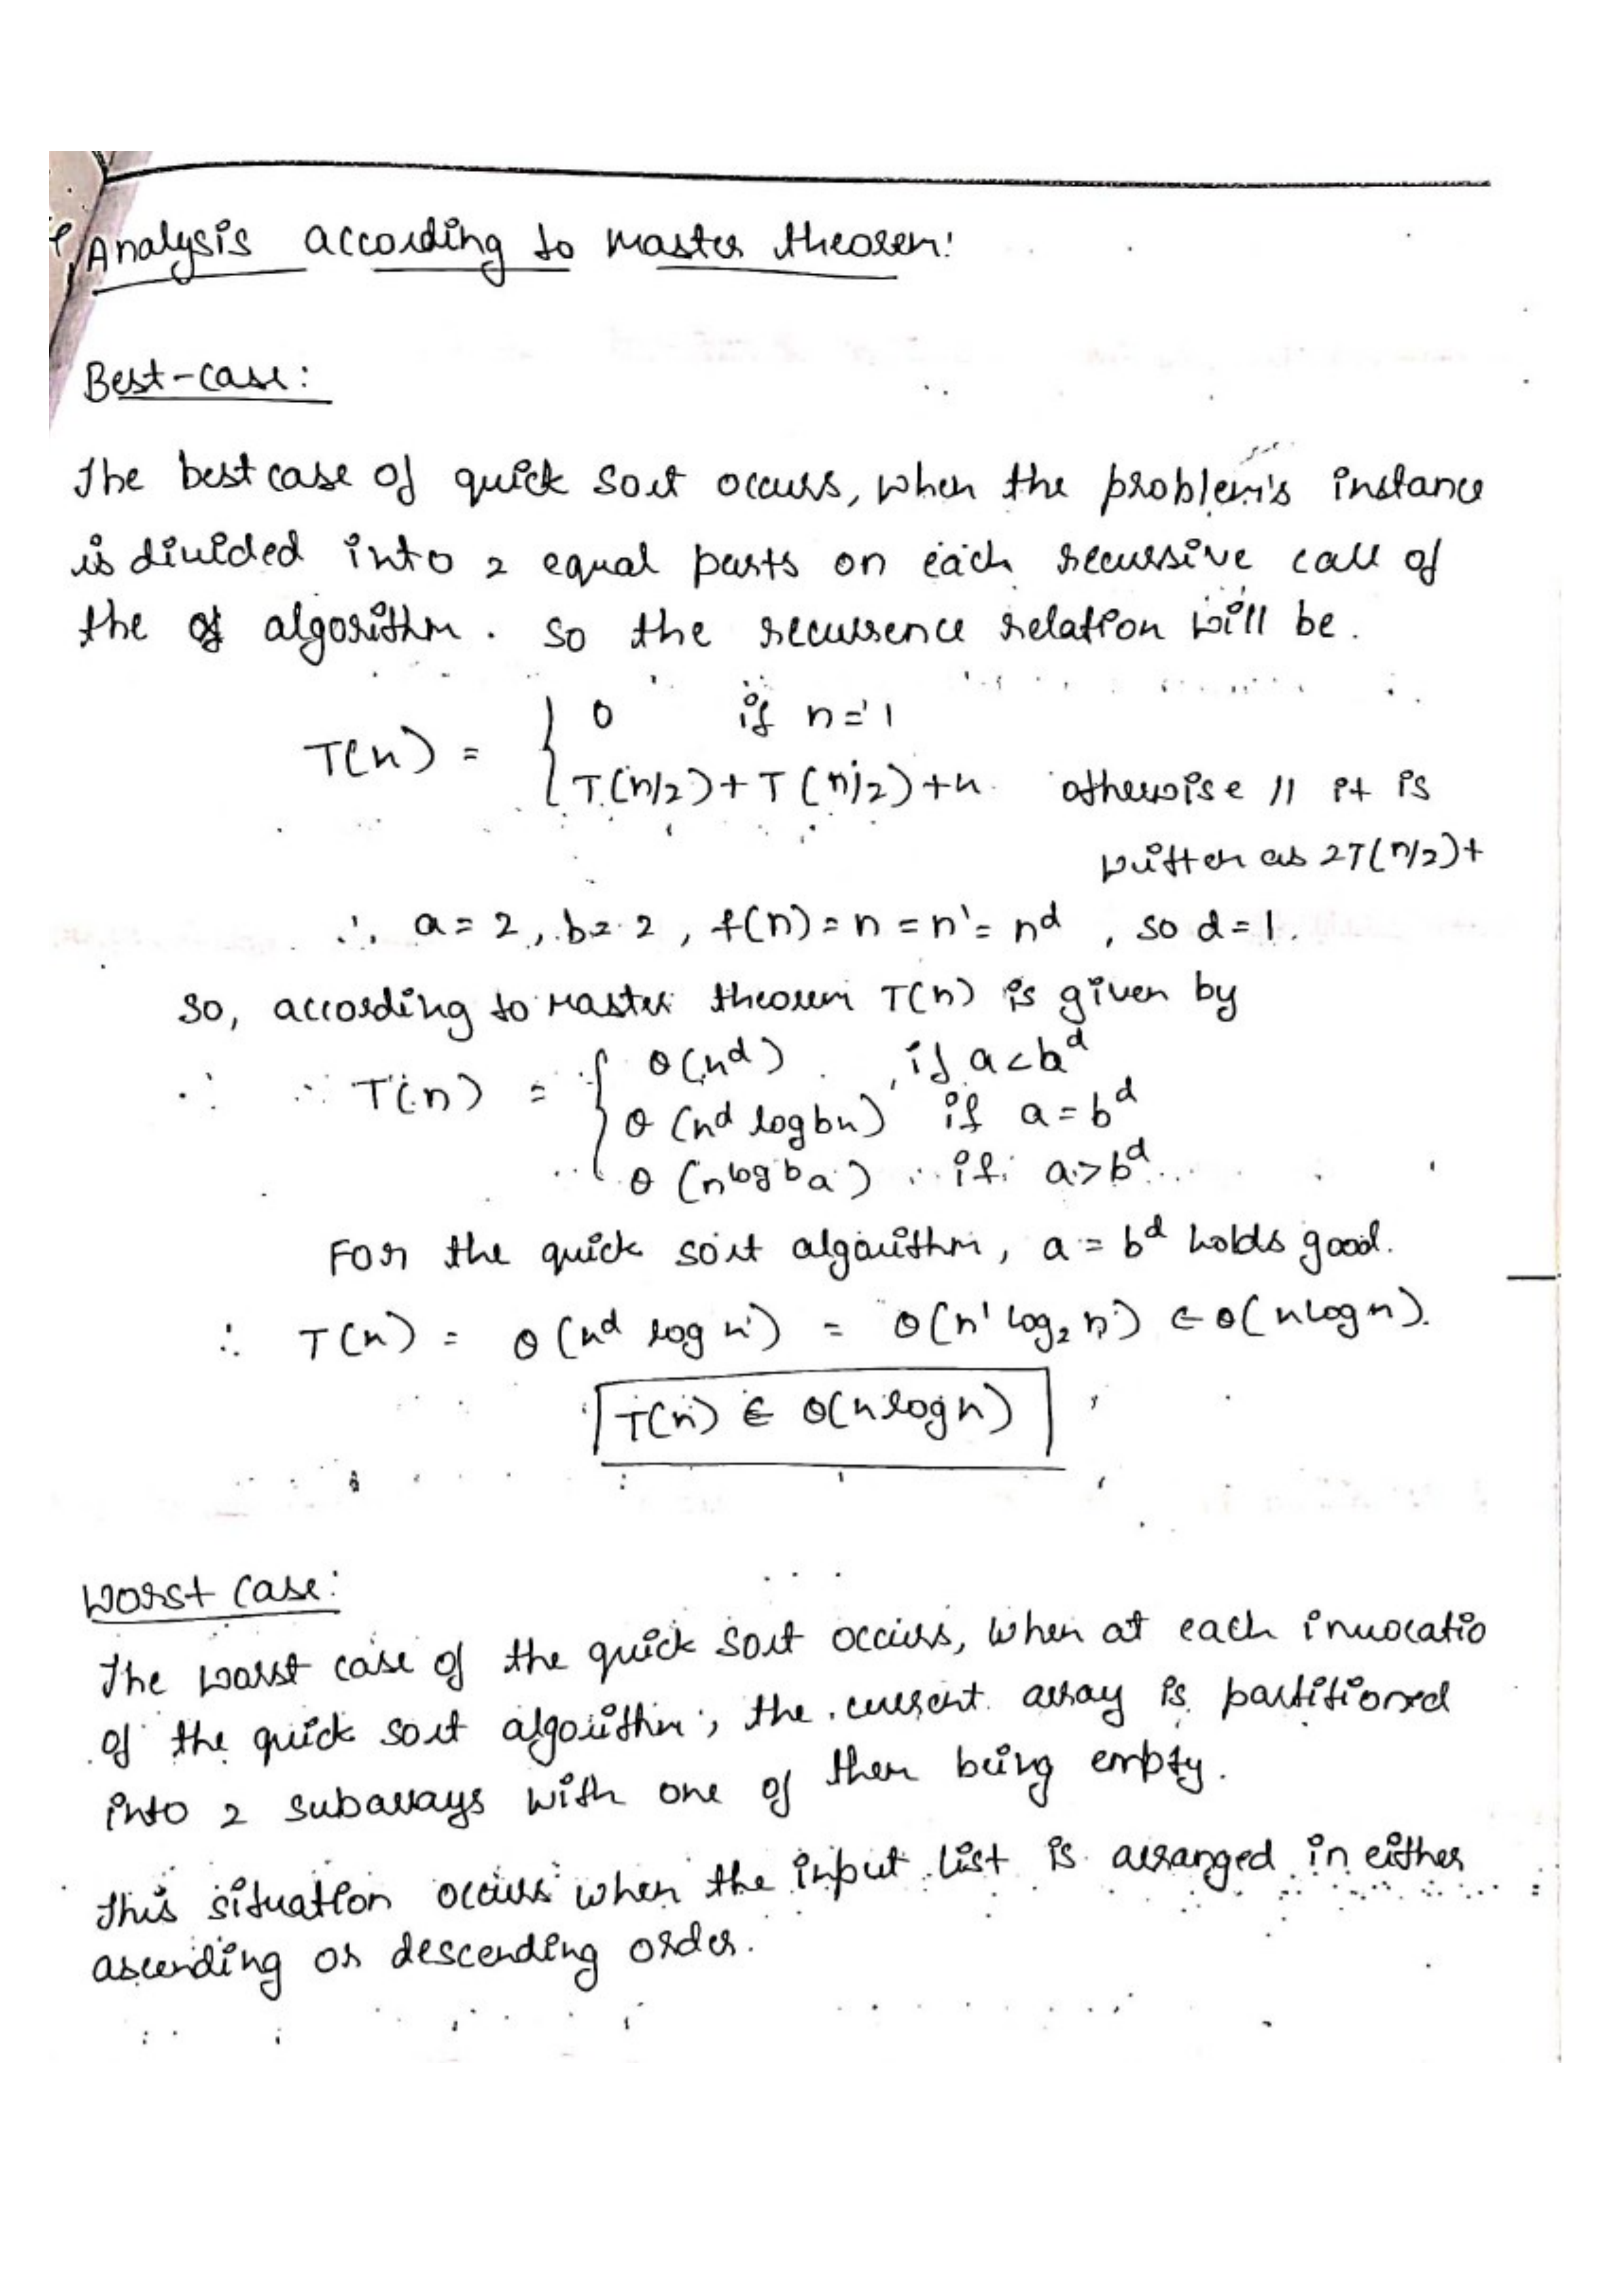 Analysis according to Master theorem:
Best-case:
The best case of quick sort occurs, when the problem's instance
is divided into 2 equal parts on each recurssive call of
the algorithm. So the recurrence relation will be.
T(n) = { 0 if n=1
T(n/2)+T(n/2)+n otherwise // it is
written as 2T(n/2)+
∴ a=2, b=2, f(n)=n=n¹=nᵈ, so d=1.
So, according to Master theorem T(n) is given by
∴ T(n) = { θ(nᵈ) , if a<bᵈ
θ(nᵈ logbn) if a=bᵈ
θ(n^logba) if a>bᵈ
For the quick sort algorithm, a=bᵈ holds good.
∴ T(n) = θ(nᵈ log n) = θ(n¹ log₂ n) ∈ θ(nlogn).
T(n) ∈ θ(nlogn)
Worst case:
The worst case of the quick sort occurs, when at each invocatio
of the quick sort algorithm, the current array is partitioned
into 2 subarrays with one of them being empty.
This situation occurs when the input list is arranged in either
ascending or descending order.